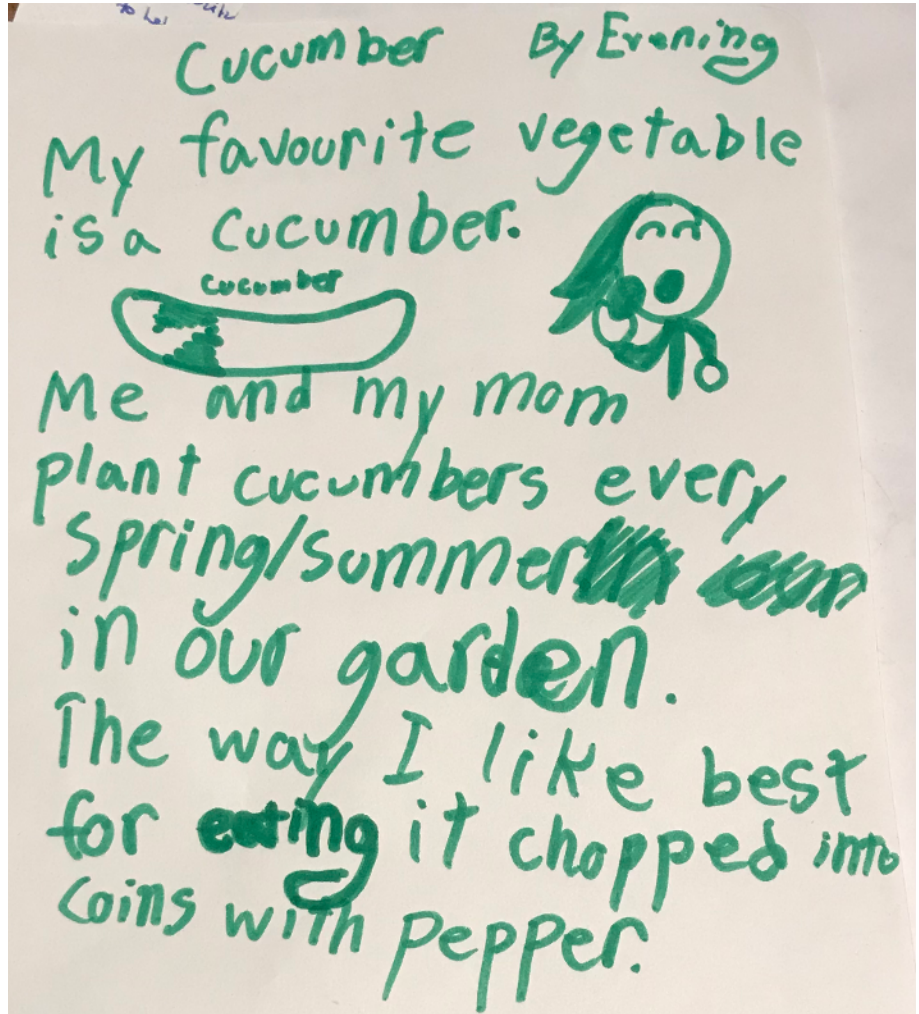 Cucumber By Evening
My favourite vegetable
is a cucumber.
cucumber
Me and my mom
plant cucumbers every
Spring/summer
in our garden.
The way I like best
for eating it chopped into
coins with pepper.